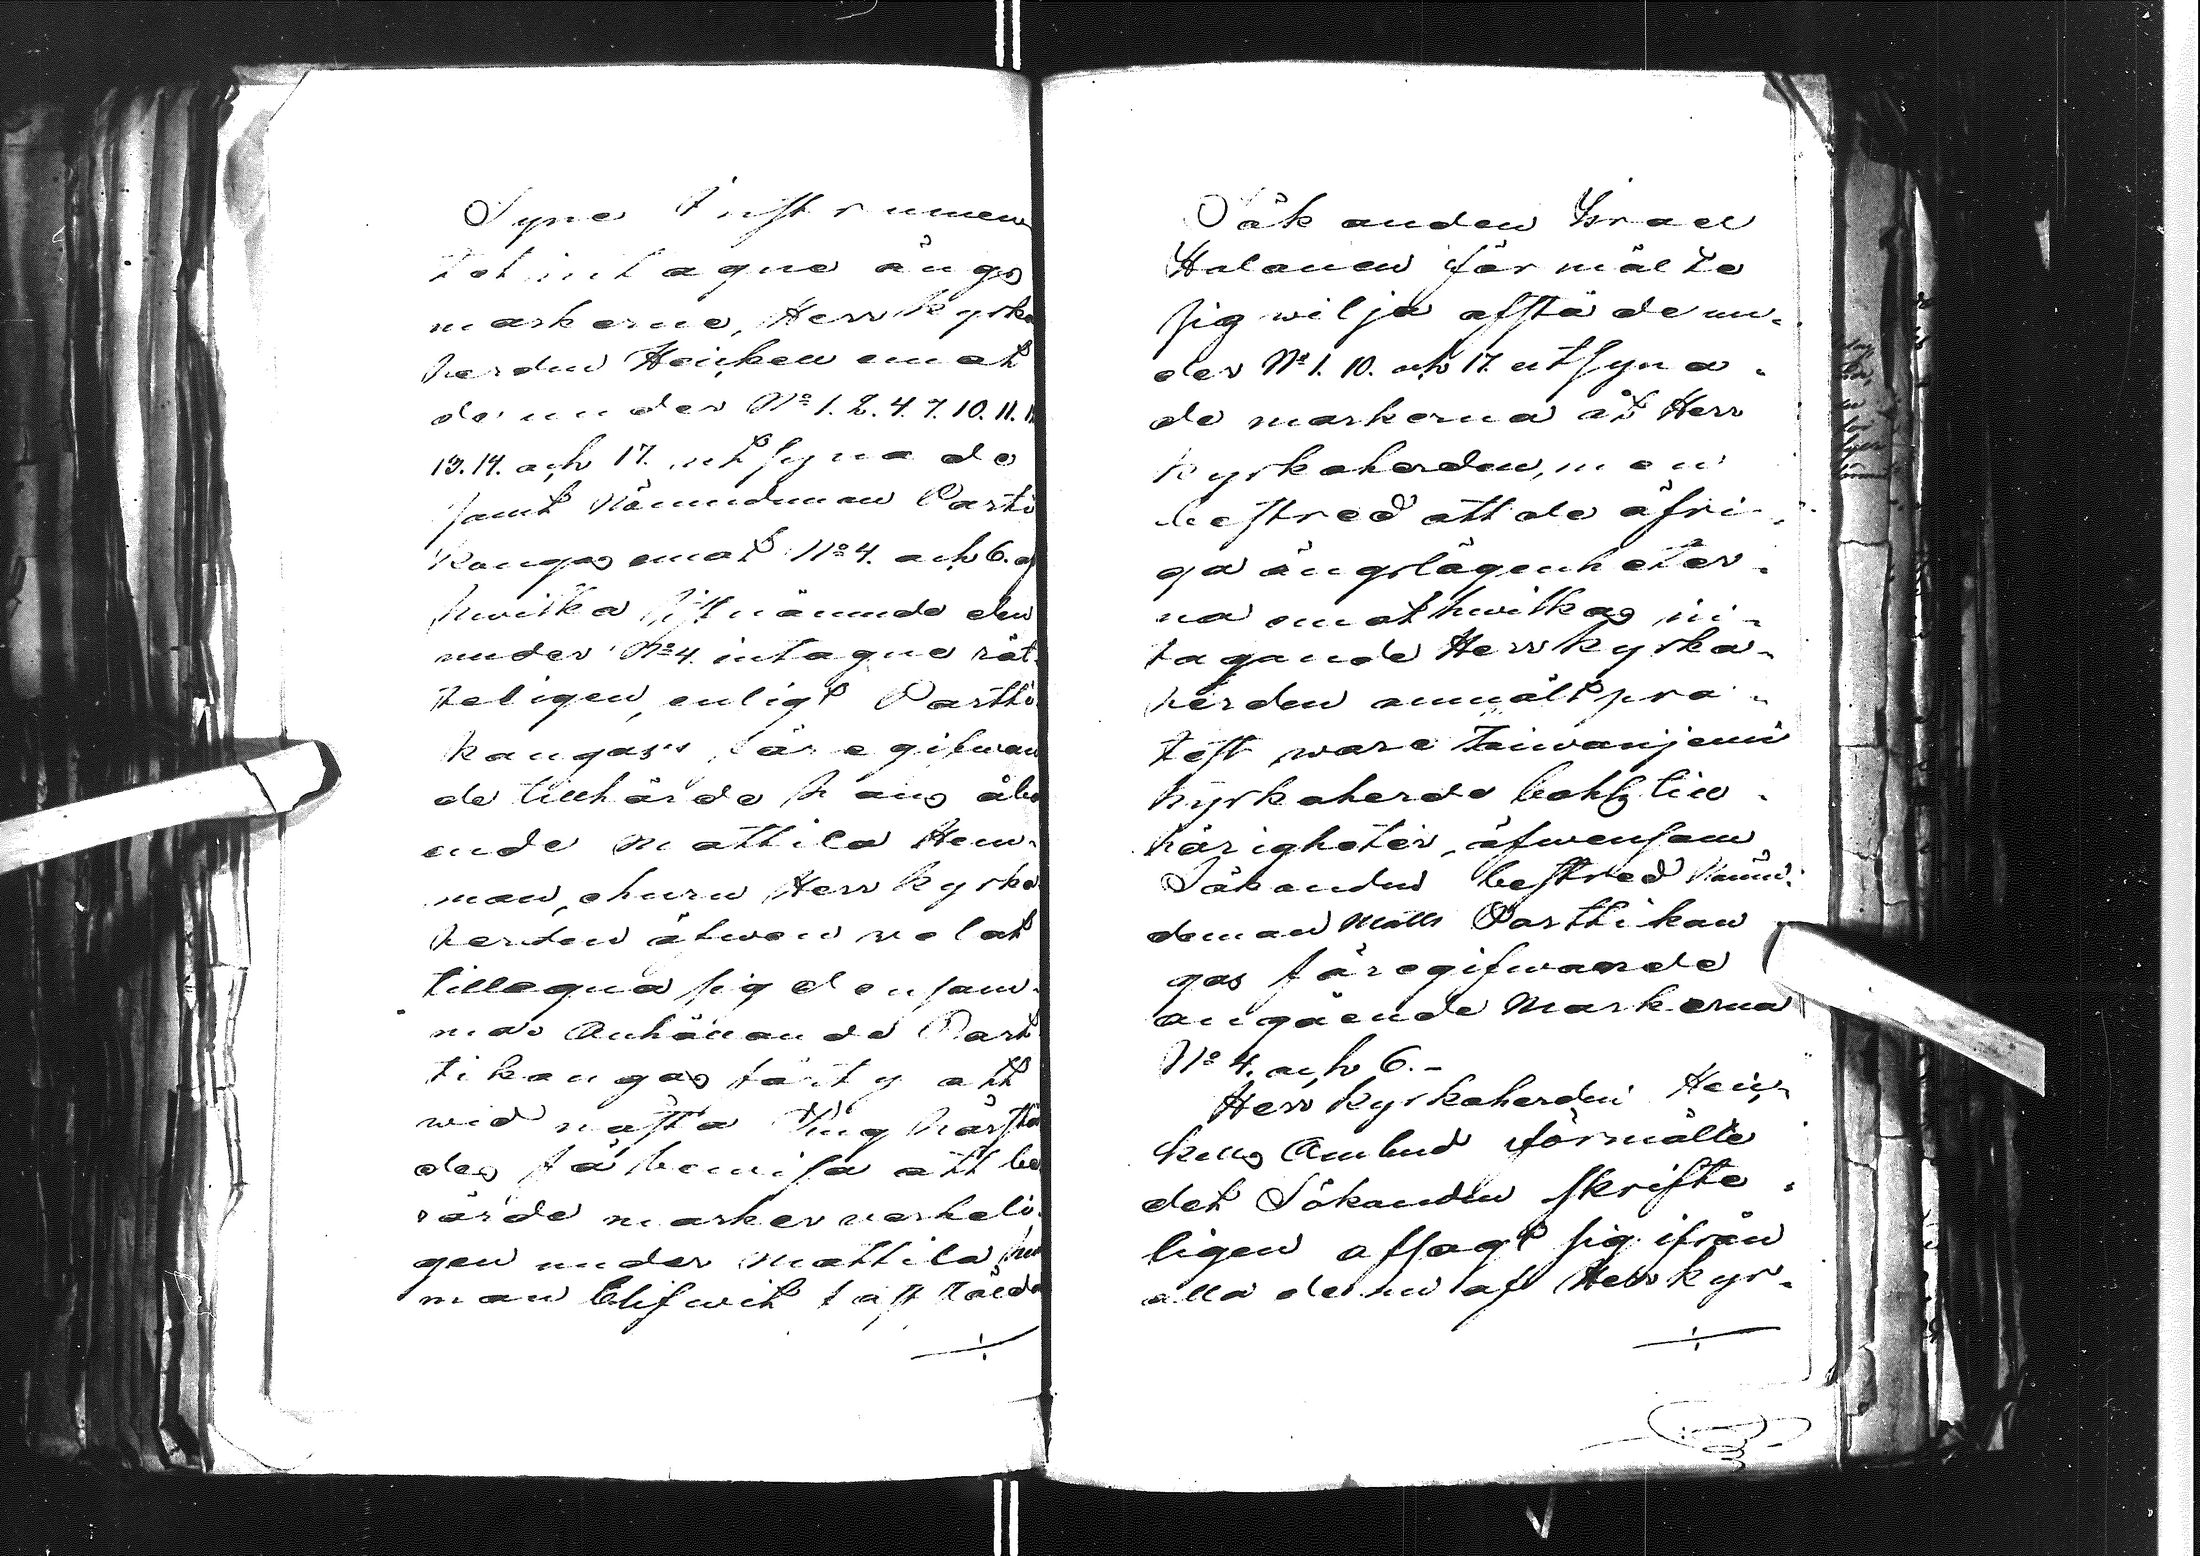 Syne Instrumen
tet intagne ängs
markerne, Herr Kyrko
herden Heinken emot
de under N:o 1. 2. 4. 7. 10. 11.
13. 14. och 17. utsynade
samt Nämndeman Partti
kangas emot N:o 4. och 6. af
hwilka sistnämnde den
under N:o 4. intagne rät
teligen, enligt Partti
kangas's föregifwan
de tillhörde hans åbo
ende Mattila Hem-
man, ehuru Herr Kyrko
herden äfwen velat
tillegna sig densam-
ma. Anhållande Part
tikangas förty att
wid nästa Ting härstä
des få bewisa att be
rörde marker verkeli
gen under Mattila hem
man blifwit fastställde
Sökanden Israel
Halonen förmälte
sig wilja afstå de un-
der N:o 1. 10. och 17. utsyna-
de markerna åt Herr
Kyrkoherden, men
bestred att de öfri-
ga ängslägenheter-
na emot hwilkas in-
tagande Herr Kyrko-
herden anmält pro-
test, wore Toiwanjemi
Kyrkoherde bohls til-
hörigheter, äfwensom
Sökanden bestred Nämn-
deman Matts Parttikan
gas föregifwande
angående Markerna
N:o 4. och 6.-
Herr Kyrkoherden Hein-
kens Ombud förmälte
det Sökanden skrifte-
ligen afsagt sig ifrån
alla de nu af Herr Kyr-